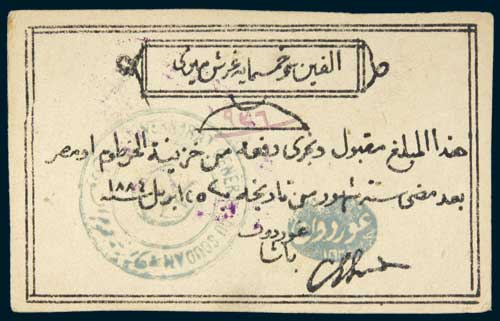 الفين وخمسمايه غرش ميرى
٩٤٦
هذا المبلغ مقبول وتجرى دفعه من خزينة الخرطوم او مصر
بعد مضى ستة شهور من تاريخه ٢٥ ابريل سنة ١٨٨٤
غوردون
باشا
غوردون
GENER DU SOUDAN